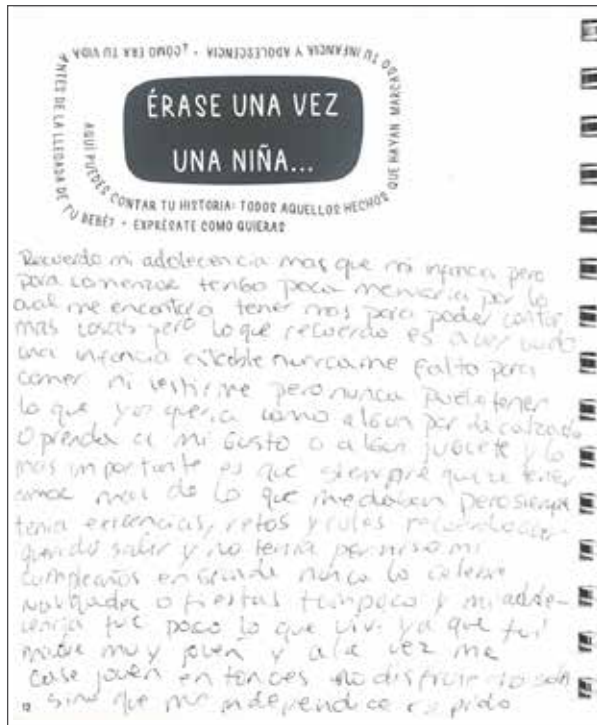 ÉRASE UNA VEZ
UNA NIÑA...
AQUÍ PUEDES CONTAR TU HISTORIA: TODOS AQUELLOS HECHOS QUE HAYAN MARCADO TU INFANCIA Y ADOLESCENCIA · ¿CÓMO ERA TU VIDA ANTES DE LA LLEGADA DE TU BEBÉ? · EXPRÉSATE COMO QUIERAS
Recuerdo mi adolecencia mas que mi infancia pero
para comenzar tengo poca memoria por lo
cual me encantaria tener mas para poder contar
mas cosas pero lo que recuerdo es aver
una infancia estable nunca me falto para
comer ni vestirme pero nunca pude tener
lo que yo queria como algun par de calzado
o prenda a mi gusto o algun juguete y lo
mas importante es que siempre quize tener
amor mas de lo que me daban pero siempre
tenia exigencias, retos y recuerdo aver
querido salir y no tenia permiso mi
cumpleaños en grande nunca lo celebre
navidades o fiestas tampoco y mi adole-
cencia fue poco lo que vivi ya que fui
madre muy joven y a la vez me
case joven entonces no disfrute no sali
sino que me independice rapido
12